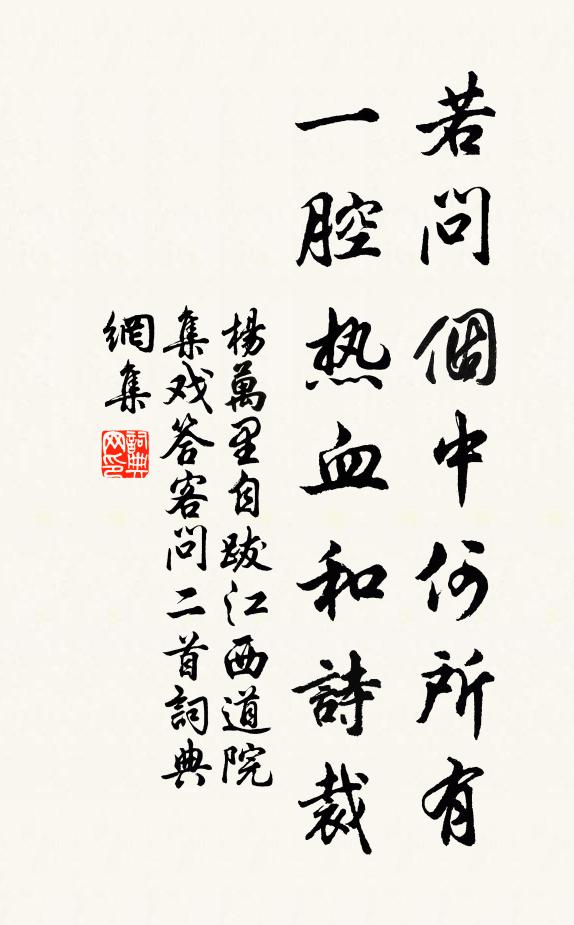 若問個中何所有
一腔热血和詩裁
楊萬里自跋江西道院
集戏答客問二首詞典
網集
詞典网印